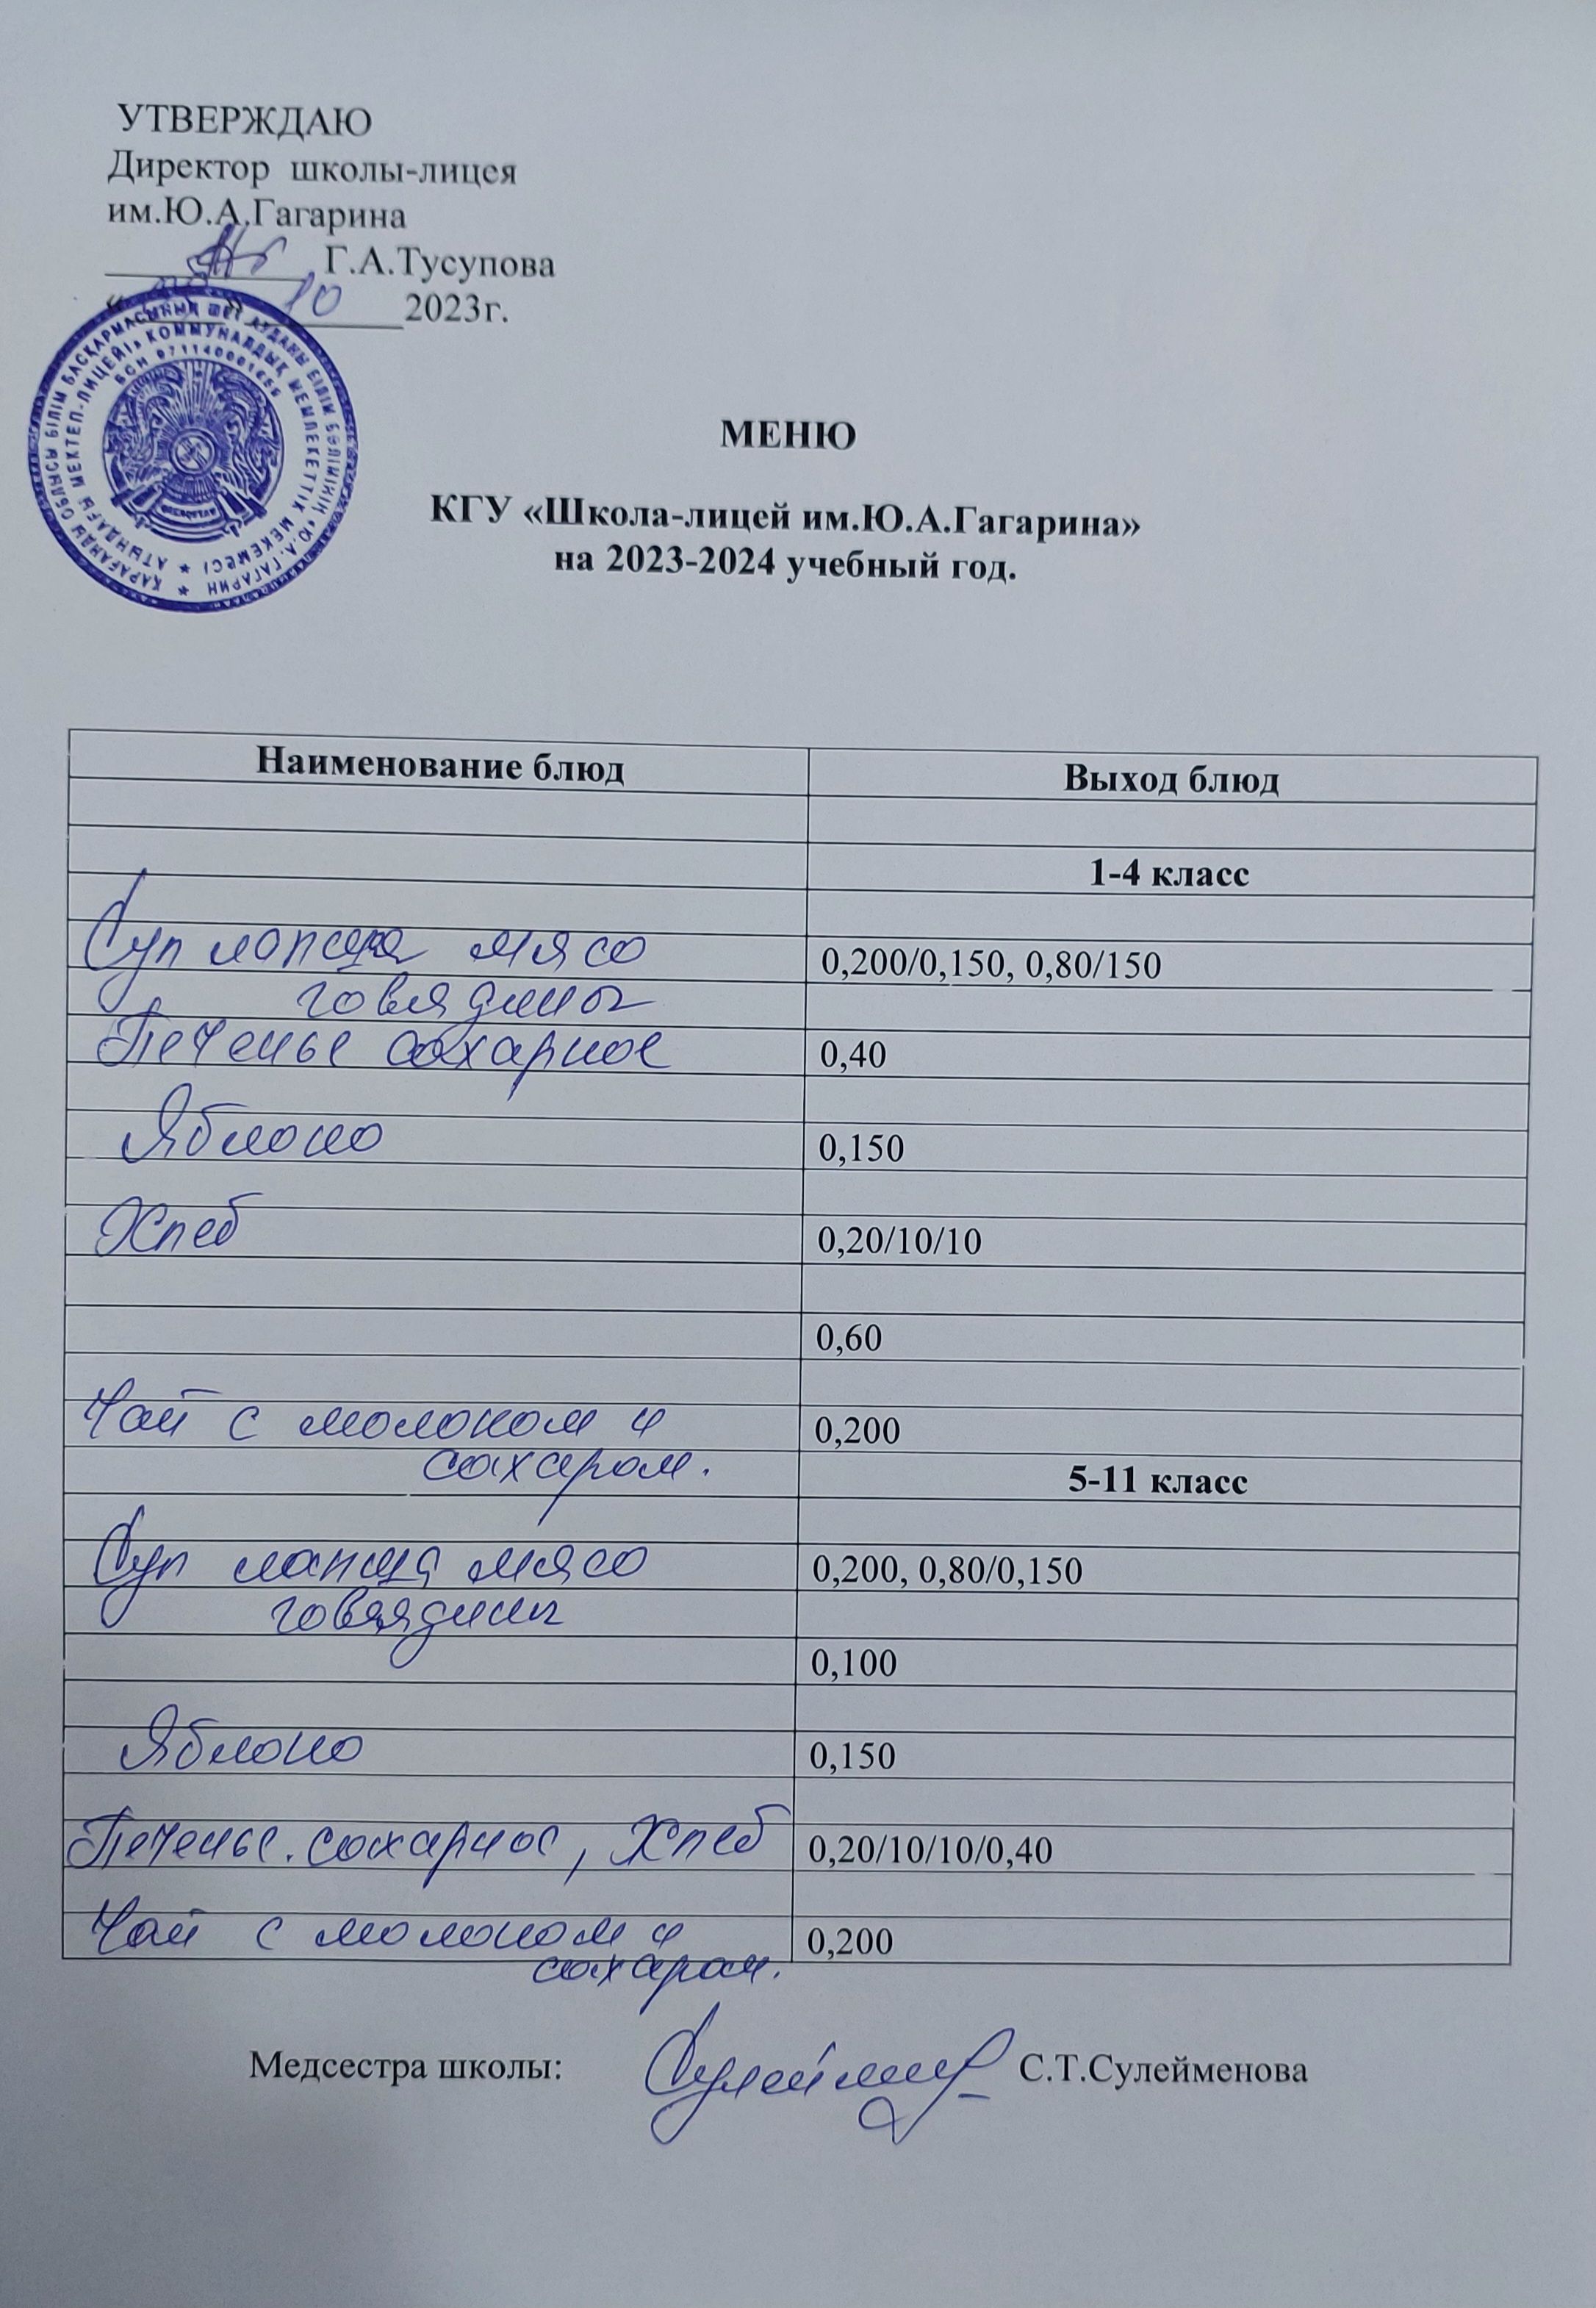 УТВЕРЖДАЮ
Директор школы-лицея
им.Ю.А.Гагарина
Г.А.Тусупова
« » 10 2023г.
ҚАРАҒАНДЫ ОБЛЫСЫ БІЛІМ БАСҚАРМАСЫНЫҢ ШЕТ АУДАНЫ БІЛІМ БӨЛІМІНІҢ «Ю.А.ГАГАРИН
АТЫНДАҒЫ МЕКТЕП-ЛИЦЕЙІ» КОММУНАЛДЫҚ МЕМЛЕКЕТТІК МЕКЕМЕСІ
БСН
МЕНЮ
КГУ «Школа-лицей им.Ю.А.Гагарина»
на 2023-2024 учебный год.
Наименование блюд Выход блюд
1-4 класс
Суп лапша мясо 0,200/0,150, 0,80/150
говядины
Печенье сахарное 0,40
Яблоко 0,150
Хлеб 0,20/10/10
0,60
Чай с молоком и 0,200
сахаром.
5-11 класс
Суп лапша мясо 0,200, 0,80/0,150
говядины
0,100
Яблоко 0,150
Печенье. сахарное, Хлеб 0,20/10/10/0,40
Чай с молоком и 0,200
сахаром.
Медсестра школы: С.Т.Сулейменова